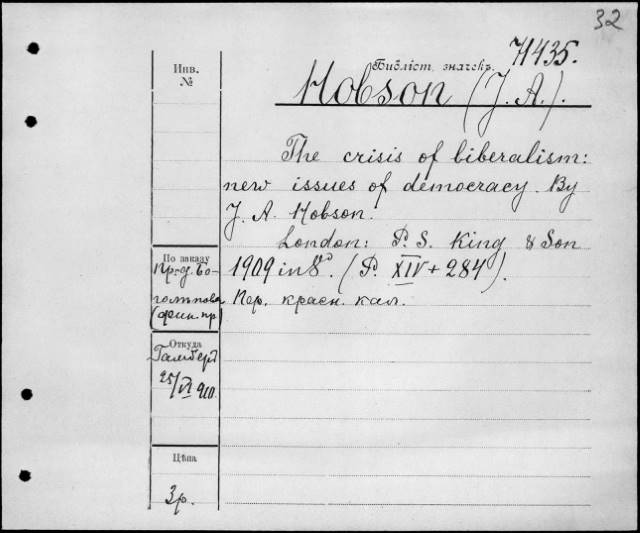 32
Библіот. значекъ.
71435.
Инв.
№
Hobson (J. A.).
The crisis of liberalism:
new issues of democracy. By
J. A. Hobson.
London: P. S. King & Son
1909 in 8°. (P. XIV + 284).
Пер. красн. кал.
По заказу
Прод. Бо-
голѣпова
(фин. пр)
Откуда
Гамберг
25/VI 910.
Цѣна
3р.